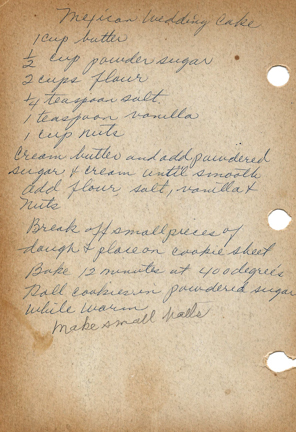 Mexican Wedding Cake
1 cup butter
1/2 cup powder sugar
2 cups flour
1/4 teaspoon salt
1 teaspoon vanilla
1 cup nuts
Cream butter and add powdered
sugar & cream until smooth
add flour, salt, vanilla &
nuts
Break off small pieces of
dough & place on cookie sheet
Bake 12 minutes at 400 degrees
Roll cookies in powdered sugar
while warm
Make small balls